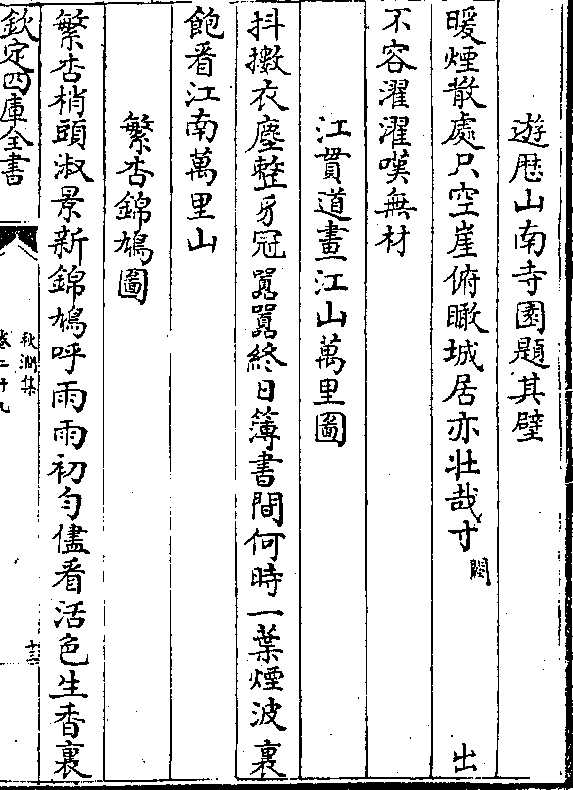 遊歴山南寺園題其壁
暖煙散處只空崖俯瞰城居亦壯哉寸闕出
不容濯濯嘆無材
江貫道畫江山萬里圖
抖擻衣塵整豸冠嚣嚣終日簿書間何時一葉煙波裏
飽看江南萬里山
繁杏錦鳩圖
繁杏梢頭淑景新錦鳩呼雨雨初勻儘看活色生香裏
欽定四庫全書
秋澗集
卷二十九
十三